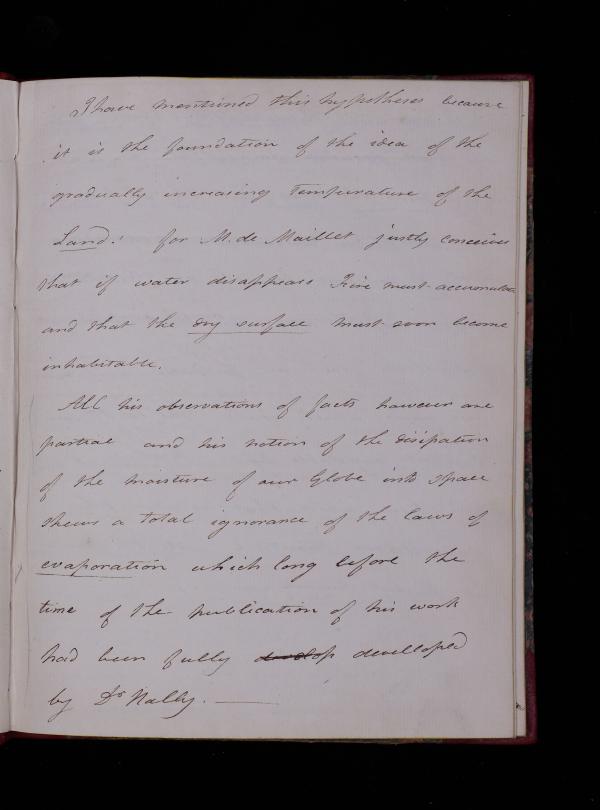 I have mentioned this hypotheses because
it is the foundation of the idea of the
gradually increasing Temperature of the
Land: for M. de Maillet justly conceives
that if water disappears Fire must accumulate
and that the dry surface must soon become
inhabitable.
All his observations of facts however are
partial and his notion of the disipation
of the moisture of our Globe into space
shews a total ignorance of the laws of
evaporation which long before the
time of the publication of his work
had been fully develop develloped
by Dr Hally.